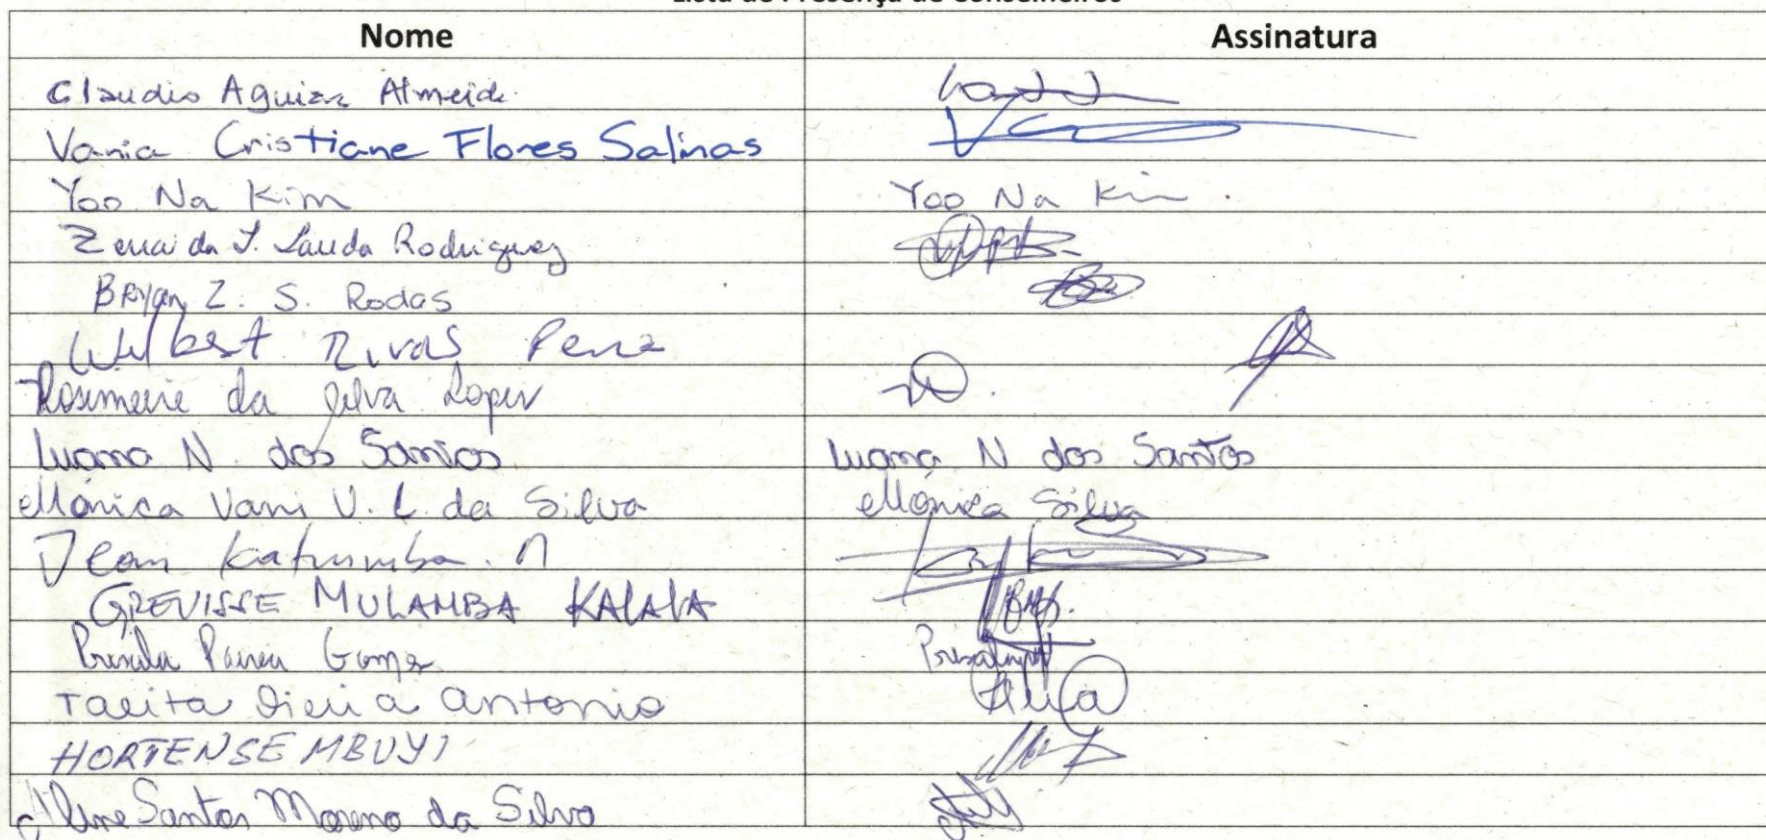 Lista de Presença de Conselheiros
Nome Assinatura
Claudio Aguiar Almeida
Vania Cristiane Flores Salinas
Yoo Na Kim Yoo Na Kim.
Zenaida J. Lauda Rodriguez
Bryan Z. S. Rodas
Wilbert Rivas Pena
Rosimeire da Silva Lopes
Luana N. dos Santos Luana N dos Santos
Mônica Vani V. L. da Silva Mônica Silva
Jean Katumba. M
GREVISSE MULAMBA KALALA
Priscila Gomes
Talita antonio
HORTENSE MBUYI
Aline Santos Moreno da Silva